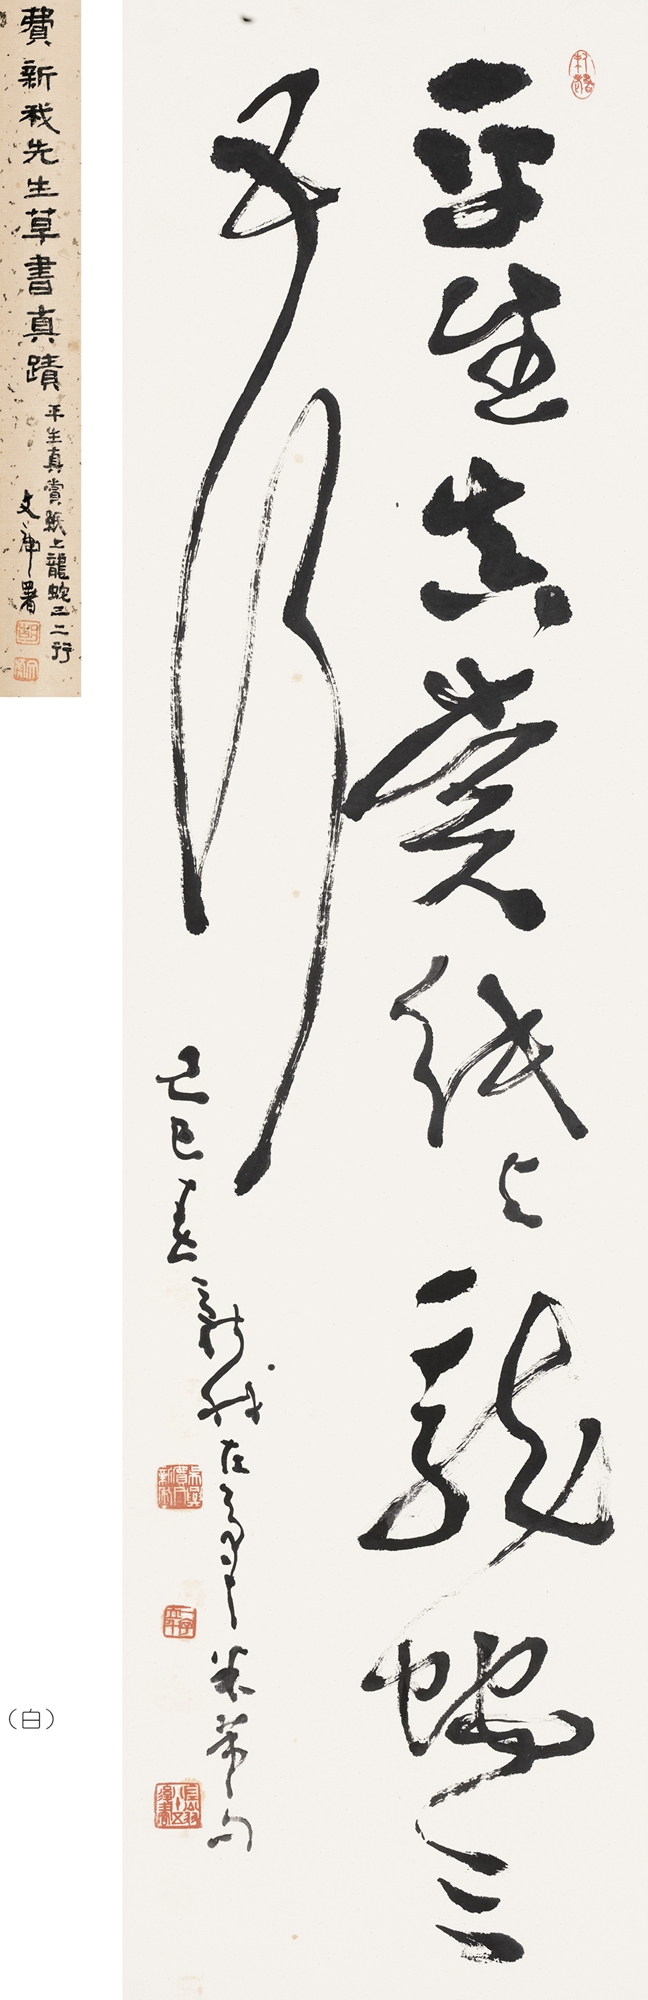 費新我先生草書真蹟
平生真賞紙上龍蛇三二行
署
平生真賞紙上龍蛇三
五行
己巳 新我 米芾句
（白）